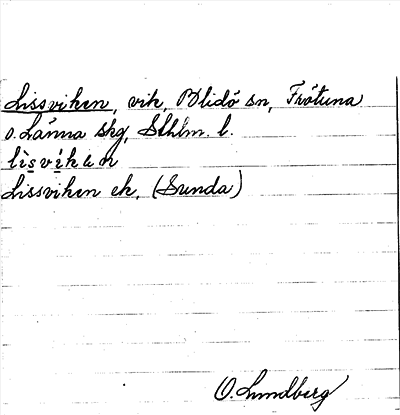 Lissviken, vik, Blidö sn, Frötuna
o. Länna skg, Sthlm. l.
lìsvíken
Lissviken ek. (Sunda)
O. Lundberg